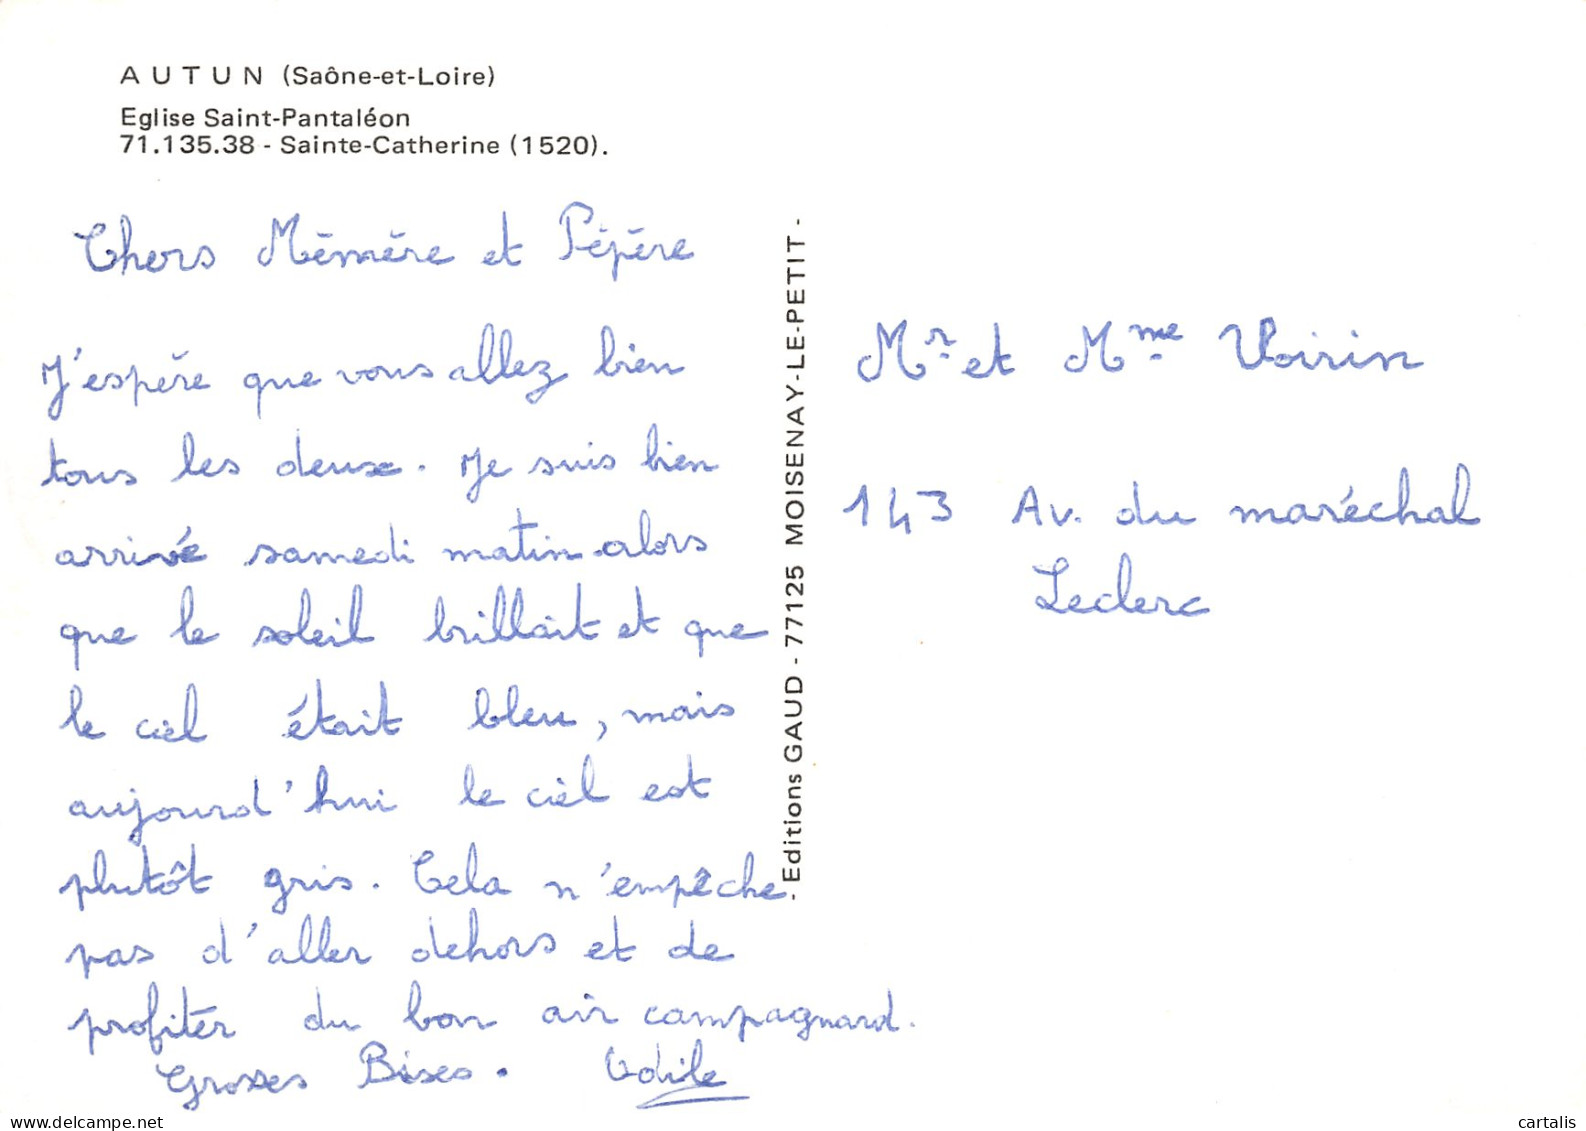 AUTUN (Saône-et-Loire)
Eglise Saint-Pantaléon
71.135.38 - Sainte-Catherine (1520).
Chers Mémére et Pépére
J'espére que vous allez bien
tous les deux. Je suis bien
arrivée samedi matin alors
que le soleil brillait et que
le ciel était bleu, mais
aujourd'hui le ciel est
plutôt gris. Cela n'empêche
pas d'aller dehors et de
profiter du bon air campagnard.
Grosses Bises. Odile
Editions GAUD - 77125 MOISENAY-LE-PETIT -
Mr et Mme Voirin
143 Av. du maréchal
Leclerc
www.delcampe.net
cartalis